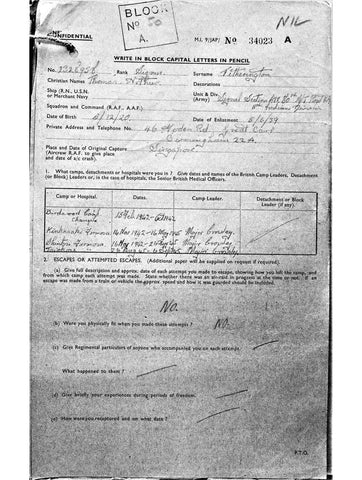 BLOCK
No 50
A.
NIL
CONFIDENTIAL
M.I. 9/JAP/ No 34023 A
WRITE IN BLOCK CAPITAL LETTERS IN PENCIL
No. Rank Signm. Surname Witherington
Christian Names Thomas Arthur Decorations
Ship (R.N., U.S.N. or Merchant Navy) Unit and Div. (Army) Signal Section
Squadron and Command (R.A.F., A.A.F.) Indian Division
Date of Birth 5/12/20. Date of Enlistment
Private Address and Telephone No. 46 Rd, Great Barr
Birmingham 22A.
Place and Date of Original Capture Singapore
(Aircrew R.A.F. to give place
and date of a/c crash).
1. What camps, detachments or hospitals were you in? Give dates and names of the British Camp Leaders, Detachment
(or Block) Leaders or, in the case of hospitals, the Senior British Medical Officers.
Camp or Hospital. Dates. Camp Leader. Detachment or Block Leader (if any).
Camp
Changie 15 Feb. 1942
Formosa 1942 1945 Major Crossley.
Formosa Major Crossley.
Major Crossley.
2. ESCAPES OR ATTEMPTED ESCAPES. (Additional paper will be supplied on request if required).
(a) Give full description and approx. date of each attempt you made to escape, showing how you left the camp, and
from which camp each attempt was made. State whether there was an air-raid in progress at the time or not. If an
escape was made from a train or vehicle the approx. speed and how it was guarded should be included.
No.
(b) Were you physically fit when you made these attempts? No.
(c) Give Regimental particulars of anyone who accompanied you on each attempt.
What happened to them?
(d) Give briefly your experiences during periods of freedom.
(e) How were you recaptured and on what date?
P.T.O.